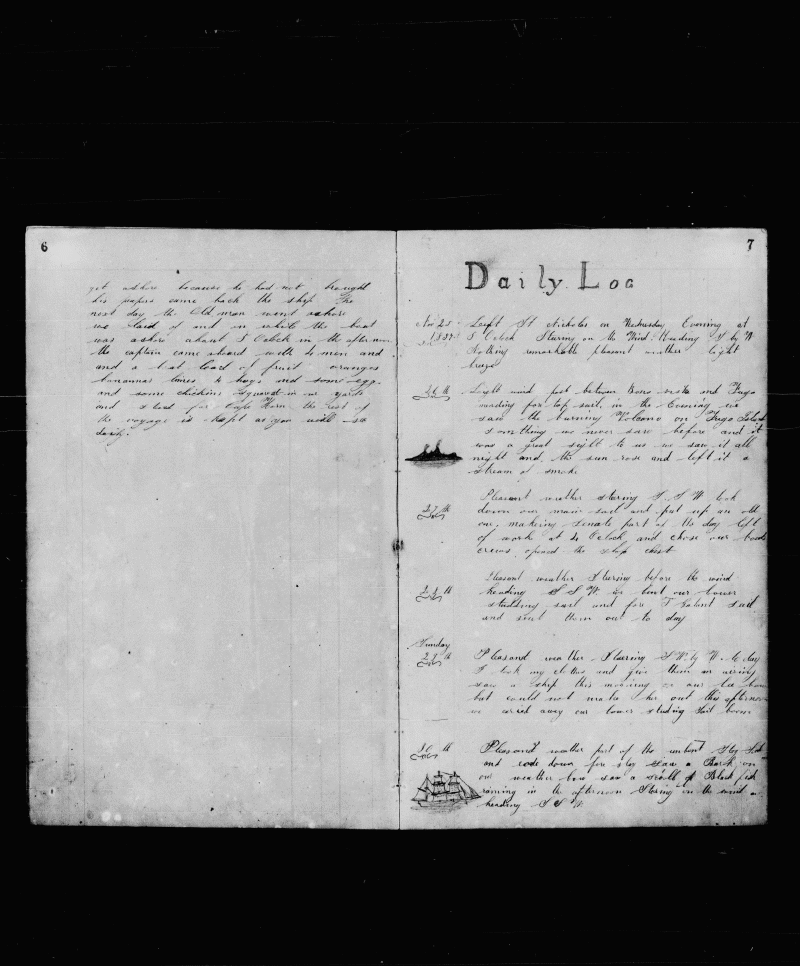 6
get ashore because he had not brought
his papers came back the ship The
next day the Old man went ashore
we laid of and on while the boat
was ashore about 5 Oclock in the afternoon
the captain came aboard with 4 men and
and a bot load of fruit oranges
bananas limes hogs and some eggs
and some chickins squared in our yards
and for Cape Horn the rest of
the voyage is kept as you will see
daily.
7
Daily Log
Nov 25 Left St Nicholas on Wednesday Evening at
5 Oclock Stering on the Wind Heading S by W
Nothing remarkable pleasant weather light
breeze
26th Light wind past between and Fugo
top sail, in the Evening we
saw the burning Volcano on Fugo Island
Somthing we never saw before and it
was a great sight to us we saw it all
night and the sun rose and left it a
stream of smoke
27th Pleasant weather stering S.S.W. took
down our main sail and put up an old
one. makeing Senate part of the day left
of work at 4 Oclock and chose our boats
crews opened the slop chest
Pleasant weather Stering before the wind
heading S S W we bent our lower
studding sail and fore T Galent sail
and sent them out to day
Sunday
Pleasand weather Stearing S W by W to day
I took my clothes and give them an airing
saw a ship this morning on our lee bow
but could not make her out this afternoon
we caried away our lower studing sail boom
30th Pleasand weather part of the
and rode down fore stay saw a Bark on
our weather bow saw a scooll of Black fish
in the afternoon Stering on the wind
heading S S W